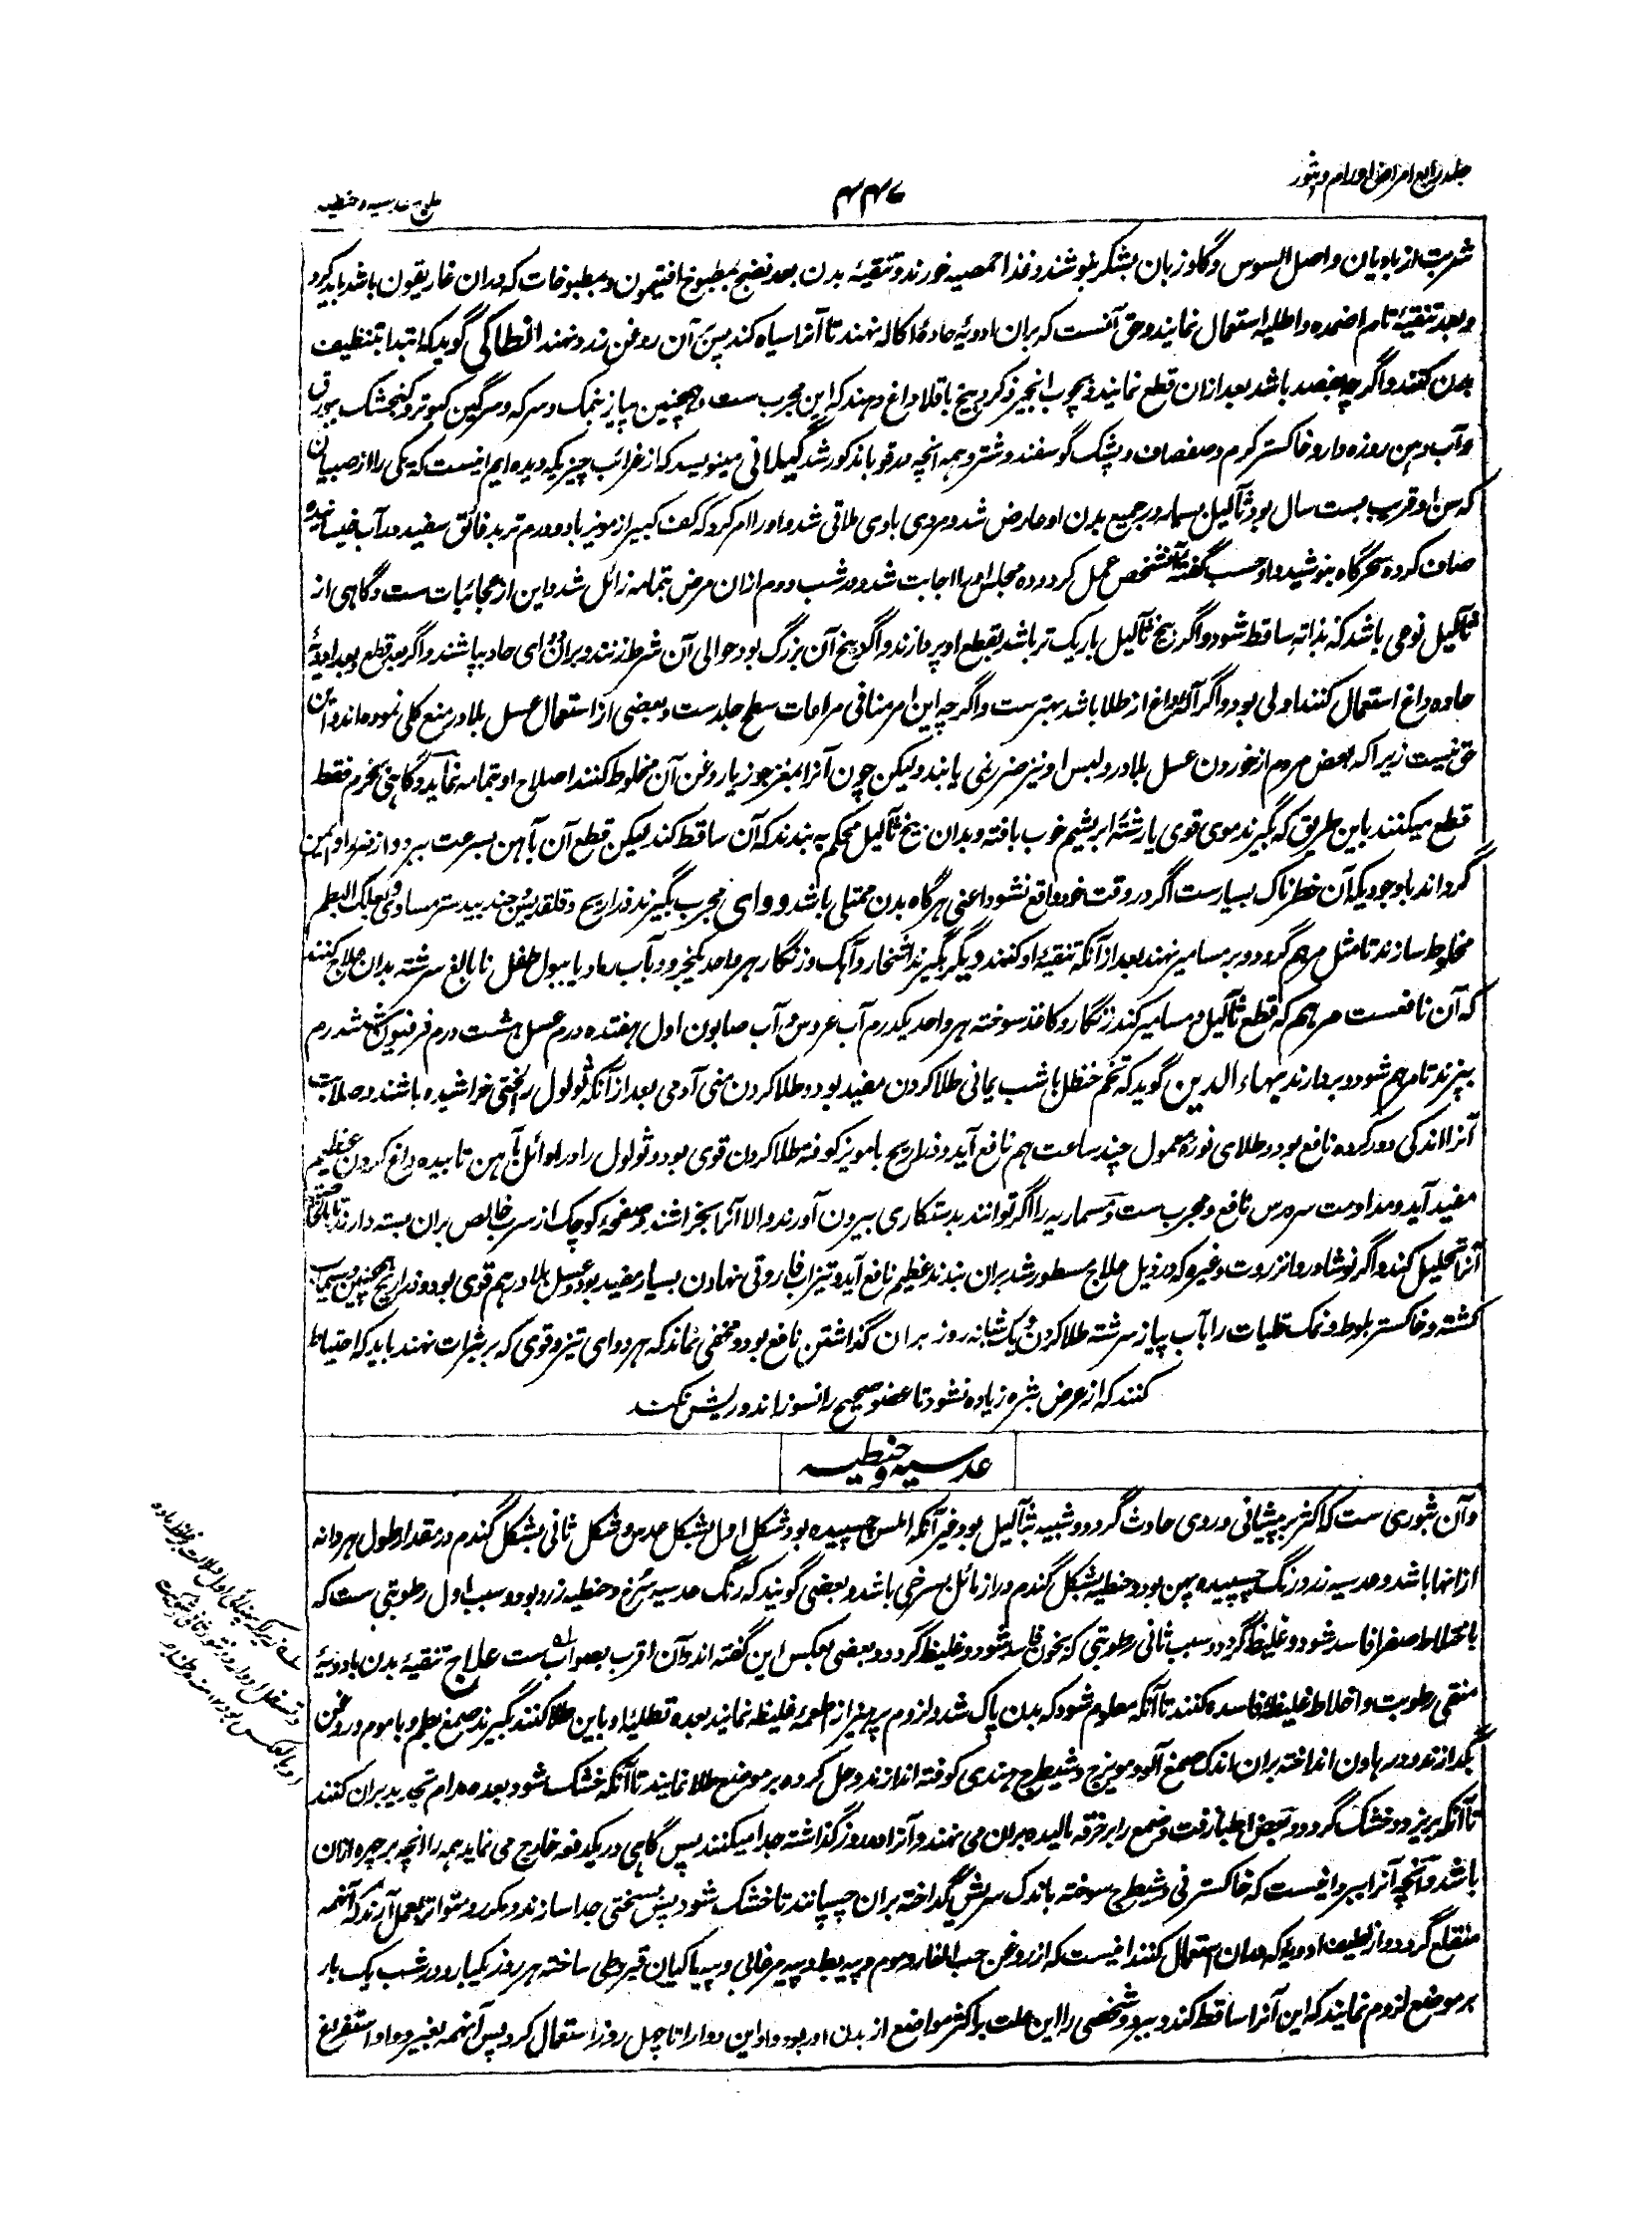 جلد رابع امراض اورام و بثور
۴۴۷
علاج عدسیه و حنطیه
شربت از بادیان و اصل السوس و گاوزبان بشکر بنوشند و غذا حمصیه خورند و تنقیهٔ بدن بعد نضج بمطبوخ افتیمون و بمطبوخات که دران غاریقون باشد باید کرد
و بعد تنقیهٔ تام اضمده و اطلیه استعمال نمایند و حق آنست که بران ادویهٔ حادهٔ اکاله نهند تا آنرا سیاه کند پس آن روغن زرد نهند انطاکی گوید که ابتدا بتنظیف
بدن کنند و اگر چه بفصد باشد بعد ازان قطع نمایند و بچوب انجیر ذکر و بیخ باقلا داغ دهند که این مجرب ست و همچنین پیاز بنمک و سرکه و سرگین کبوتر و کنجشک ببورق
و آب دهن روزه دار و خاکستر کرم و صفصاف و پشک گوسفند و شتر و همه آنچه در قوبا مذکور شد گیلانی مینویسد که از غرائب چیزیکه دیده ایم اینست که یکی را از صبیان
که سن او قریب بست سال بود ثآلیل بسیار در جمیع بدن او عارض شد و مردی باوی ملاقی شد و او را امر کرد که کف کبیر از مویز با دو درم تربد فائق سفید در آب خیسانیده
صاف کرده سحرگاه بنوشید و او حسب گفتهٔ آنشخص عمل کرد و ده مجلس او را اجابت شد و در شب دوم ازان مرض بتمامه زائل شد و این از عجائبات ست و گاهی از
ثآلیل نوعی باشد که بذاته ساقط شود و اگر بیخ ثآلیل باریک تر باشد بقطع او پردازند و اگر بیخ آن بزرگ بود حوالی آن شرط زنند و بران دوای حاد بپاشند و اگر بعد قطع بعد ادویهٔ
حاده داغ استعمال کنند اولی بود و اگر آلهٔ داغ از طلا باشد بهتر ست و اگر چه این امر منافی مراعات سطح جلد ست و بعضی از استعمال عسل بلادر منع کلی نموده‌اند و این
حق نیست زیرا که بعض مردم از خوردن عسل بلادر و لبس او نیز ضرر نمی یابند و لیکن چون آنرا بمغز جوز یا روغن آن مخلوط کنند اصلاح او بتمامه نماید و گاهی بخرم فقط
قطع میکنند باین طریق که بگیرند موی قوی یا رشتهٔ ابریشم خوب بافته و بدان بیخ ثآلیل محکم به بندند که آن ساقط کند لیکن قطع آن بآهن بسرعت ببرد و از ضرر او ایمن
گرداند باوجودیکه آن خطرناک بسیارست اگر در وقت خود واقع نشود اعنی هرگاه بدن ممتلی باشد دوای مجرب بگیرند ذراریح و قلقدیس و جند بیدستر مساوی و بعلک البطم
مخلوط سازند تا مثل مرهم گردد و بر مسامیر نهند بعد از آنکه تنقیهٔ او کنند دیگر بگیرند اشخار و آهک و زنگار هر واحد یکجزو و بآب رماد یا ببول طفل نابالغ سرشته بدان علاج کنند
که آن نافعست مرهم که قطع ثآلیل و مسامیر کند زنگار و کاغذ سوخته هر واحد یکدرم آب عروس و آب صابون اول هفتده درم عسل هشت درم فرفیون هشدرم
بپزند تا مرهم شود و بردارند بهاء الدین گوید که تخم حنظل با شب یمانی طلا کردن مفید بود و طلا کردن منی آدمی بعد از آنکه ثولول را بسختی خراشیده باشند و صلابت
آنرا اندکی دور کرده نافع بود و طلای نورهٔ معمول چند ساعت هم نافع آید و ذراریح با مویز کوفته طلا کردن قوی بود و ثولول را در اوائل بآهن تابیده داغ کردن عظیم
مفید آید و مداومت سه درس نافع و مجرب ست و مسماریه را اگر توانند بدستکاری بیرون آورند والا آنرا بخراشند و صفحهٔ کوچک از سرب خالص بران بسته دارند
آنرا تحلیل کند و اگر نوشادر و انزروت و غیره که در ذیل علاج مسطور شد بران بندند عظیم نافع آید و تیزاب فاروقی نهادن بسیار مفید بود و عسل بلادر هم قوی بود و ذراریح همچنین و سیماب
کشته و خاکستر بلوط و نمک قلیات را بآب پیاز سرشته طلا کردن و یک شبانه روز بران گذاشتن نافع بود و مخفی نماند که هر دوای تیز و قوی که بر بثرات نهند باید که احتیاط
کنند که از عرض بثره زیاده نشود تا عضو صحیح را نسوزاند و ریش نکند
عدسیه و حنطیه
و آن بثوری ست که اکثر بر پیشانی و روی حادث گردد و شبیه بثآلیل بود غیر آنکه املس چسپیده بود شکل اول بشکل عدس و شکل ثانی بشکل گندم در مقدار طول هر دانه
ازانها باشد و عدسیه زرد رنگ چسپیده پهن بود و حنطیه بشکل گندم دراز مائل بسرخی باشد و بعضی گویند که رنگ عدسیه سرخ و حنطیه زرد بود و سبب اول رطوبتی ست که
باختلاط صفرا فاسد شود و غلیظ گردد و سبب ثانی رطوبتی که بخون فاسد شود و غلیظ گردد و بعضی بعکس این گفته اند و آن اقرب بصواب ست علاج تنقیهٔ بدن بادویهٔ
منقی رطوبت و اخلاط غلیظهٔ فاسده کنند تا آنکه معلوم شود که بدن پاک شد و لزوم پرهیز از اطعمهٔ غلیظه نمایند بعده تطلیهٔ او باین طلا کنند بگیرند صمغ بطم و با موم و روغن
بگدازند و در هاون انداخته بران اندک صمغ آلو و مویزج و شیطرج هندی کوفته اندازند و حل کرده بر موضع طلا نمایند تا آنکه خشک شود بعده مرام تجدید بران کنند
تا آنکه بریزد و خشک گردد و بعض اطبا زفت و صمغ را بر خرقه مالیده بران می نهند و آنرا دو روز گذاشته جدا میکنند پس گاهی در یکدفعه خارج می نماید همه را آنچه بر چهره انسان
باشد و آنچه آنرا ببرد اینست که خاکستر نی و شیطرج سوخته باندک سریش گداخته بران چسپانند تا خشک شود پس بسختی جدا سازند و مکرر و متواتر بعمل آرند که آنهمه
منقلع گردد و از لطیف ادویه که دران استعمال کنند اینست که از روغن حب الغار و موم و پیه بط و پیه مرغابی و پیه ماکیان قیروطی ساخته هر روز یکبار و در شب یک بار
بر موضع لزوم نمایند که این آنرا ساقط کند و ببرد و شخصی را این علت بر اکثر مواضع از بدن او بود و او این دوا را تا چهل روز استعمال کرد پس آنهمه بغیر دوا و استفراغ